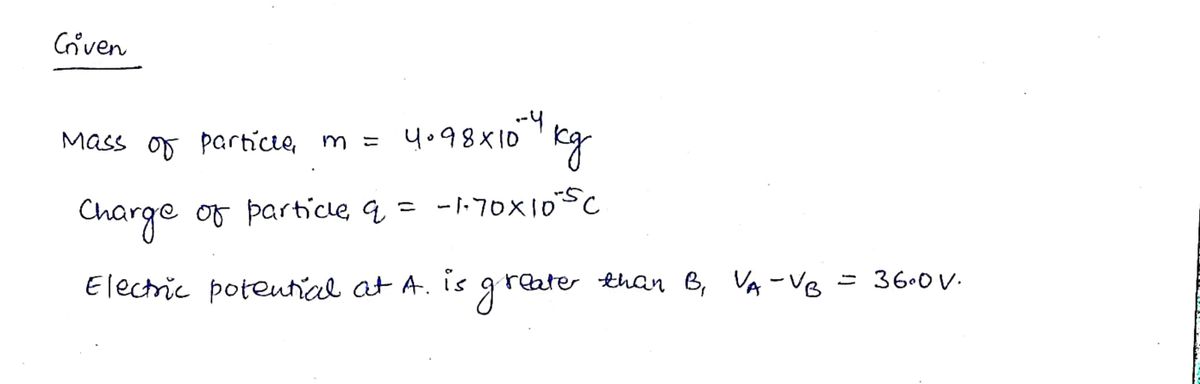 Given
Mass of particle, m = 4.98×10⁻⁴ kg
Charge of particle, q = -1.70×10⁻⁵C
Electric potential at A. is greater than B, V_A - V_B = 36.0 V.